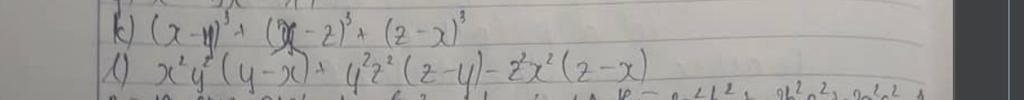 k) (x-y)³ + (y-z)³ + (z-x)³
l) x²y²(y-x) + y²z²(z-y) - z²x²(z-x)